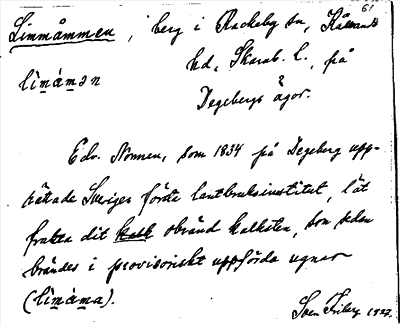 61
Limmåmmen, berg i Rackeby sn, Kållands
lìmámən hd, Skarab. l., på
Degebergs ägor.
Edv. Nonnen, som 1834 på Degeberg upp-
rättade Sveriges första lantbruksinstitut, lät
frakta dit kalk obränd kalksten, som sedan
brändes i provisoriskt uppförda ugnar
(lìmáma).
Sven Friberg 1927.